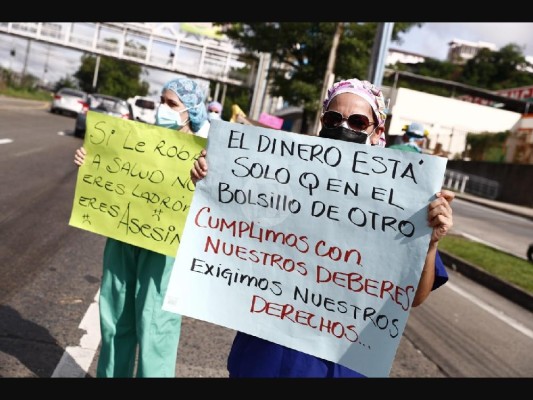 Si Le ROBA
A SALUD NO
ERES LADRÓN
ERES ASESINO
EL DINERO ESTÁ
SOLO Q EN EL
BOLSILLO DE OTRO
CUMPLIMOS CON
NUESTROS DEBERES
EXIGIMOS NUESTROS
DERECHOS...